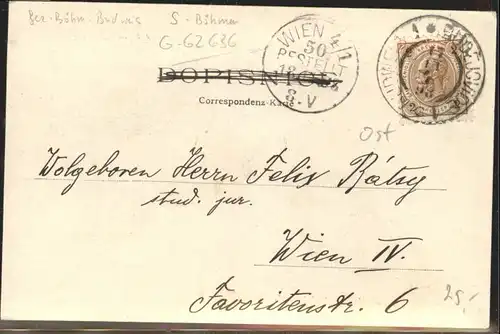 Bez. Böhm. Budweis S-Böhmen
G-62636
WIEN 4/1
50
BESTELLT
8.V
DOPISNICE
Correspondenz-Karte
Ost
Wolgeboren Herrn Felix Rátsy
stud. jur.
Wien IV.
Favoritenstr. 6
25,-